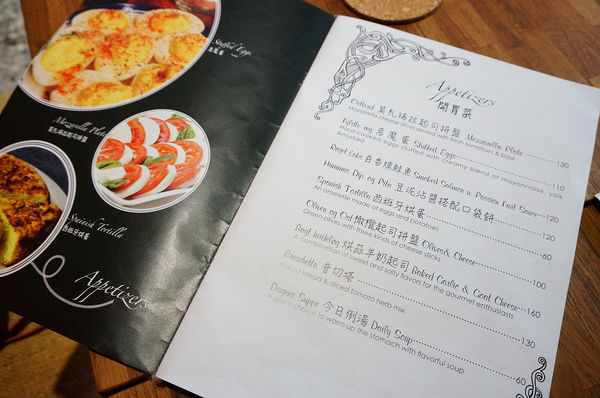 Stuffed Eggs
惡魔蛋
Mozzarella Plate
莫札瑞拉起司拼盤
Spainish Tortilla
西班牙烘蛋
Appetizers
Appetizers
開胃菜
莫札瑞拉起司拼盤 Mozzarella Plate 130
Mozzarella cheese slices served with fresh tomatoes & basil
惡魔蛋 Stuffed Eggs 110
Hard-cooked eggs stuffed with creamy blend of mayonnaise, yolk
&mustard
白香檳鮭魚 Smoked Salmon w. Passion Fruit Sauce 120
Hummus Dip og Pita 豆泥沾醬搭配口袋餅 120
Spansk Tortilla 西班牙烘蛋 120
An omelette made of eggs and potatoes
Oliven og Ost 橄欖起司拼盤 Olives& Cheese 100
Green olives with three kinds of cheese sticks
烘蒜羊奶起司 Baked Garlic & Goat Cheese 160
A combination of sweet and salty flavors for the gourmet enthusiasts
Bruschetta 音切塔 130
Baked bread & diced tomato herb mix
Dagens Suppe 今日例湯 Daily Soup 60
A great choice to warm up the stomach with flavorful soup